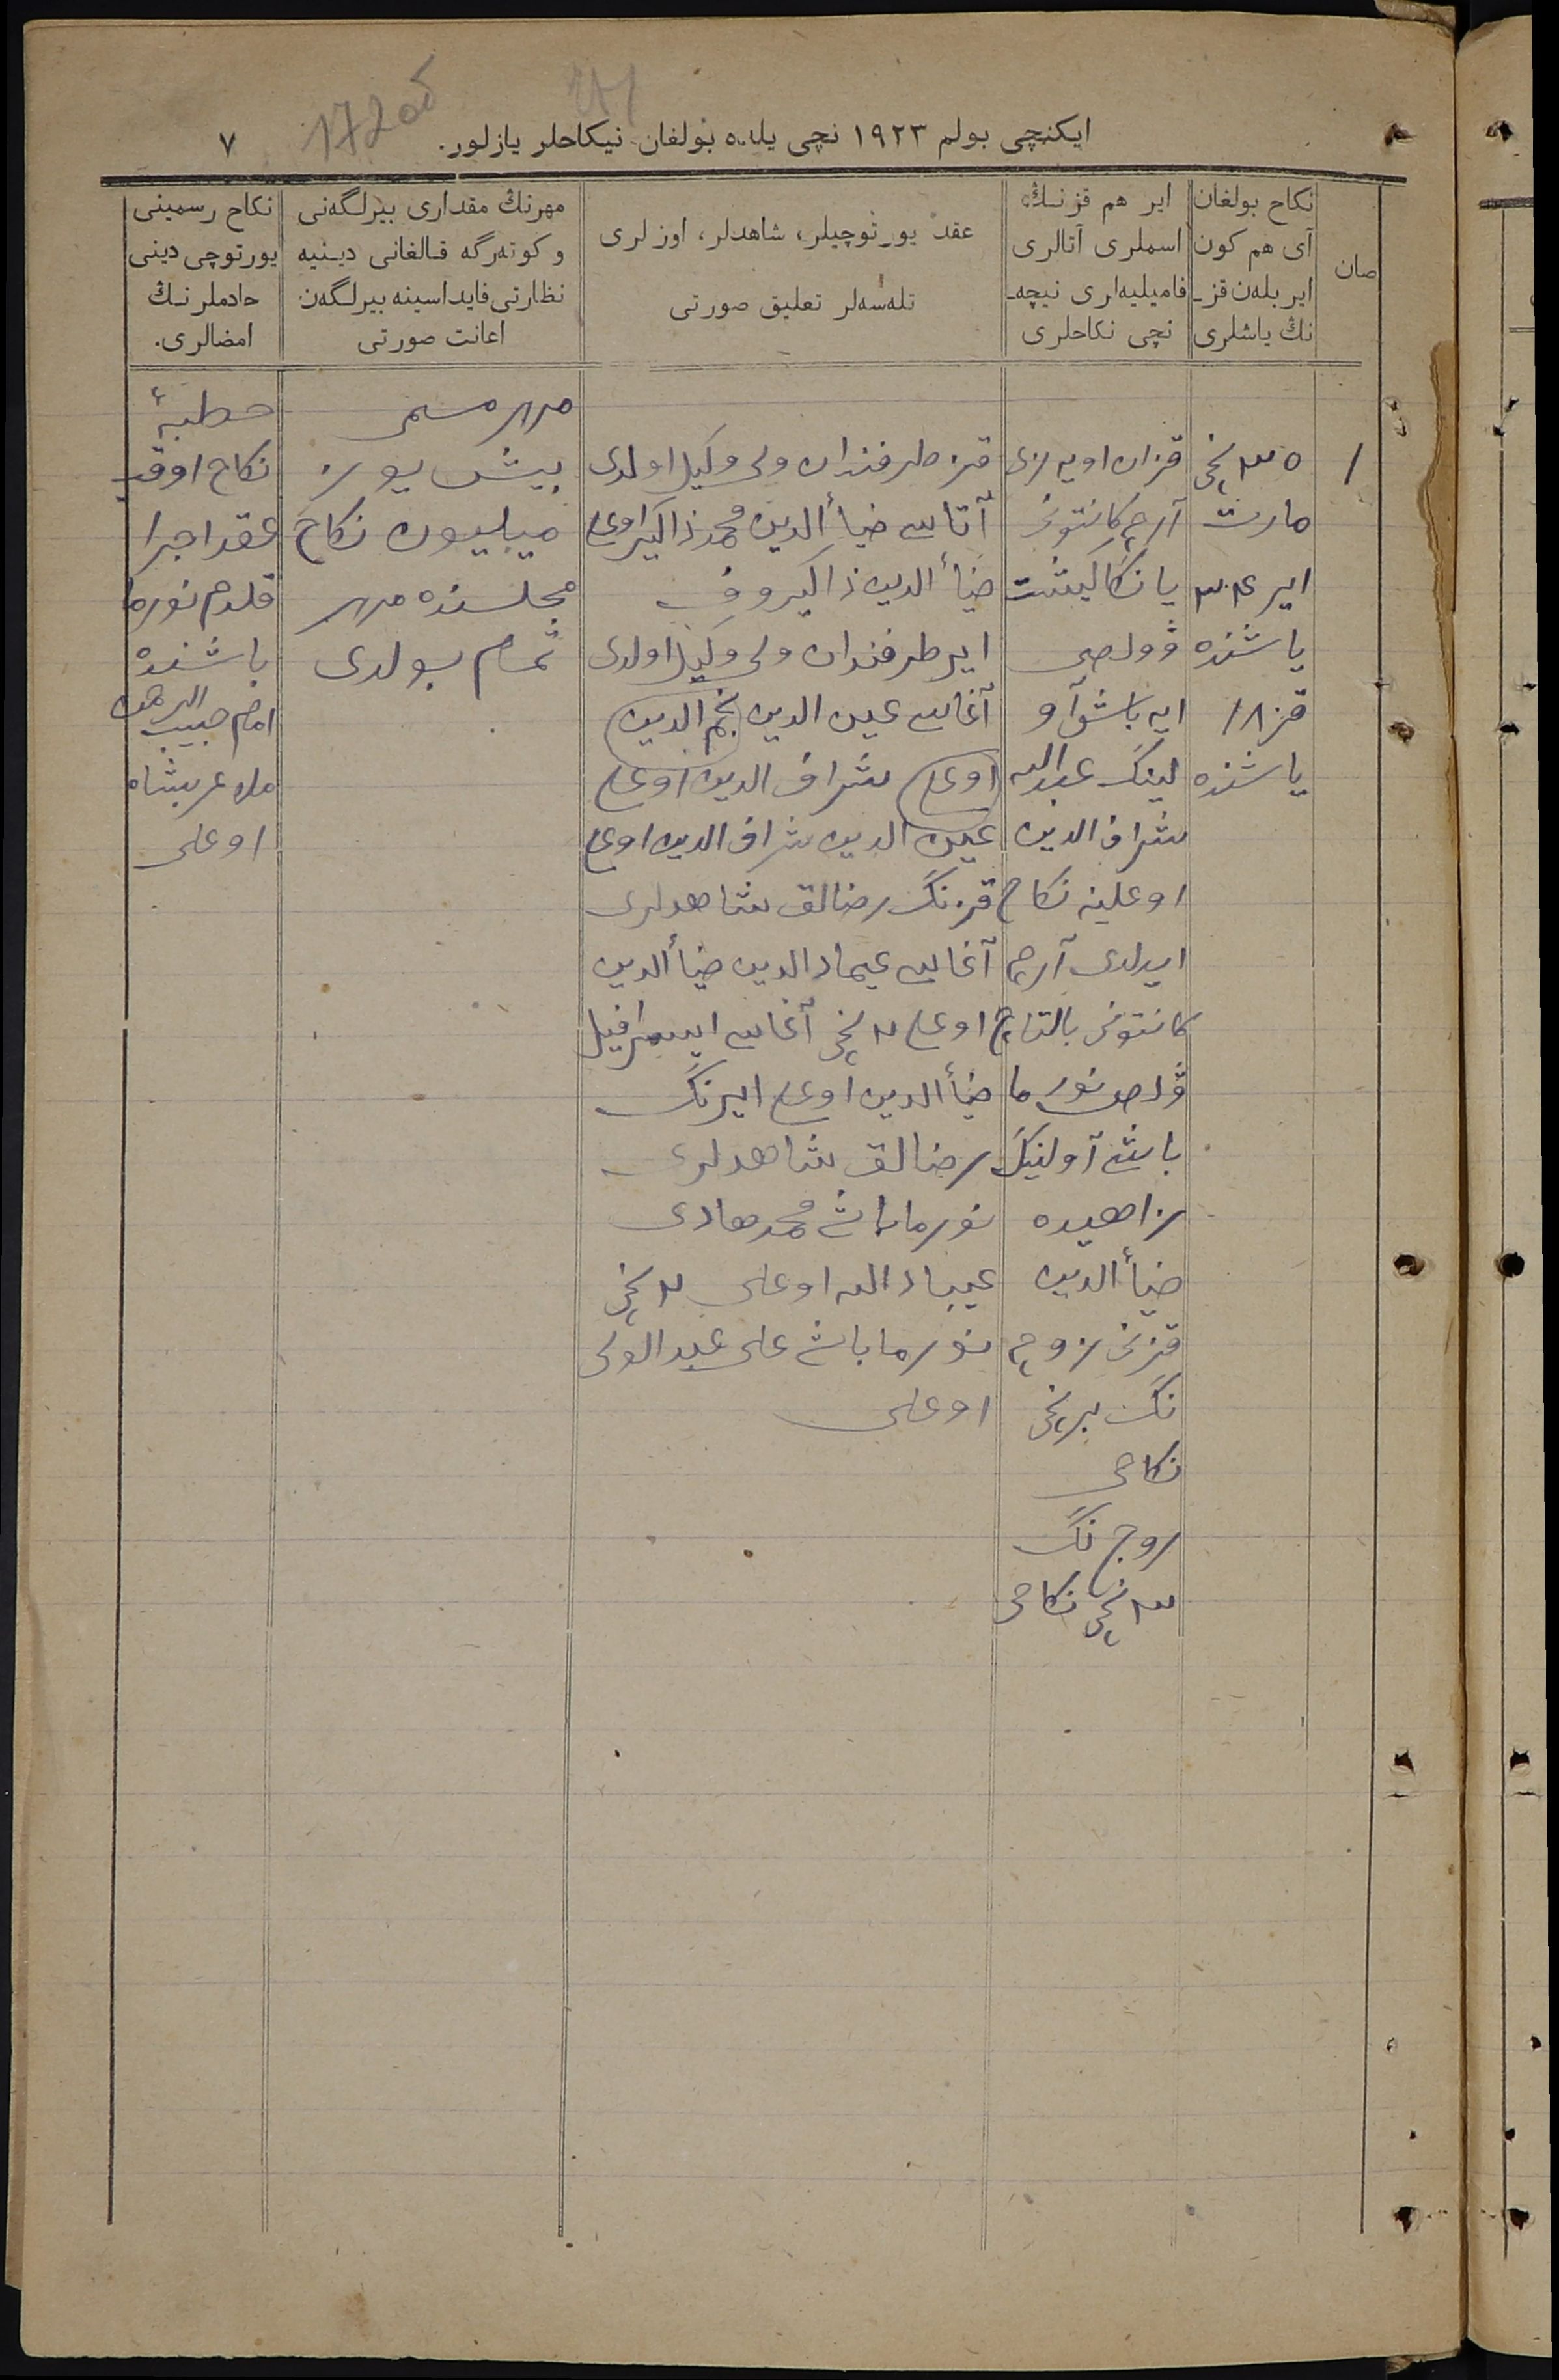 172 об
ایکنچی بولم ۱۹۲۳ نچی یلده بولغان نیکاحلر یازلور.
۷
صان
نکاح بولغان
آی هم کون
ایر بلەن قز-
نڭ یاشلری
ایر هم قزنڭ
اسملری آتالری
فامیلیەلری نیچه-
نچی نکاحلری
عقد یورتوچیلر، شاهدلر، اوزلری
تلەسەلر تعلیق صورتی
مهرنڭ مقداری بیرلگەنی
و کوتەرگە قالغانی دینیه
نظارتی فایداسینه بیرلگەن
اعانت صورتی
نکاح رسمینی
یورتوچی دینی
خادملرنڭ
امضالری.
۱
۲۵ نچی
مارت
ایر
یاشنده
قز ۱۸
یاشنده
قزان اویەزی
آرچ کانتونی
وولصی
ایه باش آو
لینڭ عبدالله
شراف الدین
اوعلینه نکاح
ایدلدی آرچ
کانتونی بالتاچ
ولصی نورما
باش آولینڭ
زاهیده
ضیأالدین
قزنی زوج
نڭ برنچی
نکاحی
زوج نڭ
۲ نچی نکاحی
قز طرفندان ولی وکیل اولدی
آتاسی ضیأالدین محمدذاکیر اوعلی
ضیأالدین ذاکیروف
ایر طرفندان ولی وکیل اولدی
آغاسی عین الدین نجم الدین
اوعلی شراف الدین اوعلی
عین الدین شراف الدین اوعلی
قزنڭ رضالق شاهدلری
آغاسی عیماد الدین ضیأالدین
اوعلی ۲ نچی آغاسی ایسرافیل
ضیأالدین اوعلی ایرنڭ
رضالق شاهدلری
نورما باش محمدهادی
عیبادالله اوعلی ۲ نچی
نورما باش علی عبدالولی
اوعلی
مهر مسمی
بیش یوز
میلیون نکاح
مجلسنده مهر
تمام بولدی
خطبهٔ
نکاح اوقب
عقد اجرا
قلدم نورما
باشنده
امام حبیب الرحمن
ملا عربشاه
اوعلی